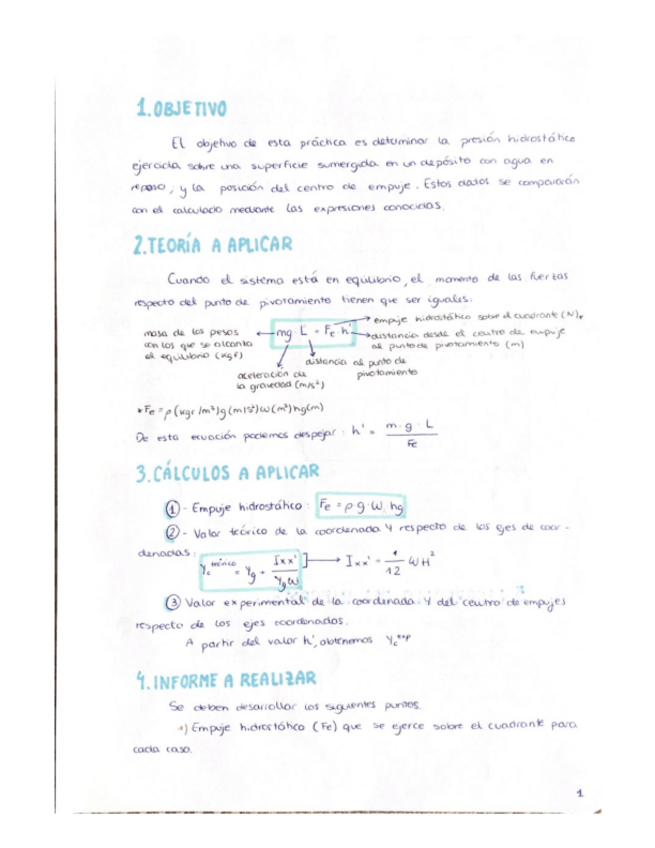 1. OBJETIVO
El objetivo de esta práctica es determinar la presión hidrostática
ejercida sobre una superficie sumergida en un depósito con agua en
reposo, y la posición del centro de empuje. Estos datos se compararán
con el calculado mediante las expresiones conocidas.
2. TEORÍA A APLICAR
Cuando el sistema está en equilibrio, el momento de las fuerzas
respecto del punto de pivotamiento tienen que ser iguales:
mg · L = Fe · h'
masa de los pesos
con los que se alcanza
el equilibrio (kgf)
aceleración de
la gravedad (m/s²)
distancia al punto de
pivotamiento
empuje hidrostático sobre el cuadrante (N)*
distancia desde el centro de empuje
al punto de pivotamiento (m)
* Fe = ρ (kgr/m³) g (m/s²) ω (m²) hg (m)
De esta ecuación podemos despejar: h' = m · g · L / Fe
3. CÁLCULOS A APLICAR
① - Empuje hidrostático: Fe = ρ g · ω hg
② - Valor teórico de la coordenada Y respecto de los ejes de coor-
denadas:
Yc teórico = Yg + Ixx' / Yg ω → Ixx' = 1/12 WH²
③ Valor experimental de la coordenada Y del centro de empujes
respecto de los ejes coordenados.
A partir del valor h', obtenemos Yc exp
4. INFORME A REALIZAR
Se deben desarrollar los siguientes puntos.
a) Empuje hidrostático (Fe) que se ejerce sobre el cuadrante para
cada caso.
1